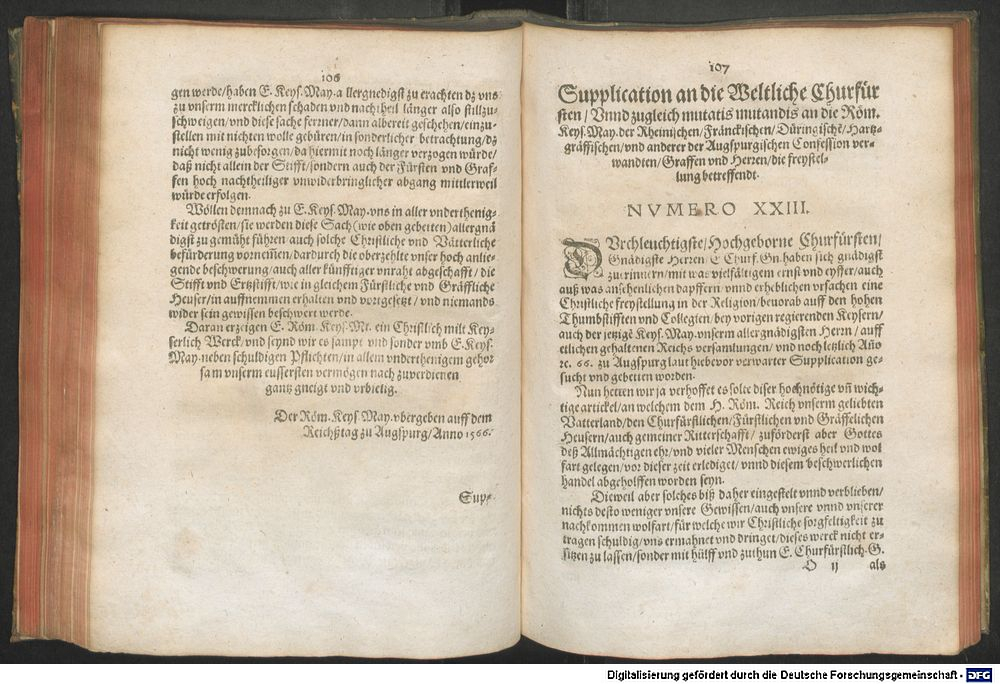 106
gen werde/haben E. Keys. May. allergnedigst zu erachten dz vns
zu vnserm mercklichen schaden vnd nachtheil länger also stillzu-
schweigen/vnd diese sache ferrner/dann albereit geschehen/einzu-
stellen mit nichten wolle gebüren/in sonderlicher betrachtung/dz
nicht wenig zubesorgen/da hiermit noch länger verzogen würde/
daß nicht allein der Stifft/sondern auch der Fürsten vnd Graf-
fen hoch nachtheiliger vnwiderbringlicher abgang mittlerweil
würde erfolgen.
Wöllen demnach zu E. Keys. May. vns in aller vnderthenig-
keit getrösten/sie werden diese Sach (wie oben gebeten) allergnä
digst zu gemüht führen auch solche Christliche vnd Vätterliche
befürderung vornemen/dardurch die oberzehlte vnser hoch anlie-
gende beschwerung/auch aller künfftiger vnraht abgeschafft/die
Stifft vnd Ertzstifft/wie in gleichem Fürstliche vnd Gräffliche
Heuser/in auffnemmen erhalten vnd vortgesetzt/vnd niemands
wider sein gewissen beschwert werde.
Daran erzeigen E. Röm. Keys. Mt. ein Christlich milt Key-
serlich Werck/vnd seynd wir es sampt vnd sonder vmb E. Keys.
May. neben schuldigen Pflichten/in allem vnderthenigem gehor
sam vnserm eussersten vermögen nach zuverdienen
gantz gneigt vnd vrbietig.
Der Röm. Keys. May. vbergeben auff dem
Reichßtag zu Augspurg/Anno 1566.
Sup-
107
Supplication an die Weltliche Churfür
sten/Vnnd zugleich mutatis mutandis an die Röm.
Keys. May. der Rheinischen/Fränckischen/Düringische/Hartz-
gräffischen/vnd anderer der Augspurgischen Confession ver-
wandten/Graffen vnd Herren/die freystel-
lung betreffendt.
NVMERO XXIII.
DVrchleuchtigste/Hochgeborne Churfürsten/
Gnädigste Herren. E Churf. Gn. haben sich gnädigst
zu erinnern/mit was vielfältigem ernst vnd eyffer/auch
auß was ansehenlichen dapffern vnnd erheblichen vrsachen eine
Christliche freystellung in der Religion/beuorab auff den hohen
Thumbstifften vnd Collegien/bey vorigen regierenden Keysern/
auch der jetzige Keys. May. vnserm allergnädigsten Herrn/auff
etlichen gehaltenen Reichs versamlungen/vnd noch letzlich Año
ꝛc. 66. zu Augspurg laut hiebevor verwarter Supplication ge-
sucht vnd gebetten worden.
Nun hetten wir ja verhoffet es solte diser hochnötige vñ wich-
tige artickel/an welchem dem H. Röm. Reich vnserm geliebten
Vatterland/den Churfürstlichen/Fürstlichen vnd Gräffelichen
Heusern/auch gemeiner Ritterschafft/zuförderst aber Gottes
deß Allmächtigen ehr/vnd vieler Menschen ewiges heil vnd wol
fart gelegen/vor dieser zeit erlediget/vnnd diesem beschwerlichen
handel abgeholffen worden seyn.
Dieweil aber solches biß daher eingestelt vnnd verblieben/
nichts desto weniger vnsere Gewissen/auch vnsere vnnd vnserer
nachkommen wolfart/für welche wir Christliche sorgfeltigkeit zu
tragen schuldig/vns ermahnet vnd dringet/dieses werck nicht er-
sitzen zu lassen/sonder mit hülff vnd zuthun E. Churfürstlich. G.
O ij als
Digitalisierung gefördert durch die Deutsche Forschungsgemeinschaft - DFG